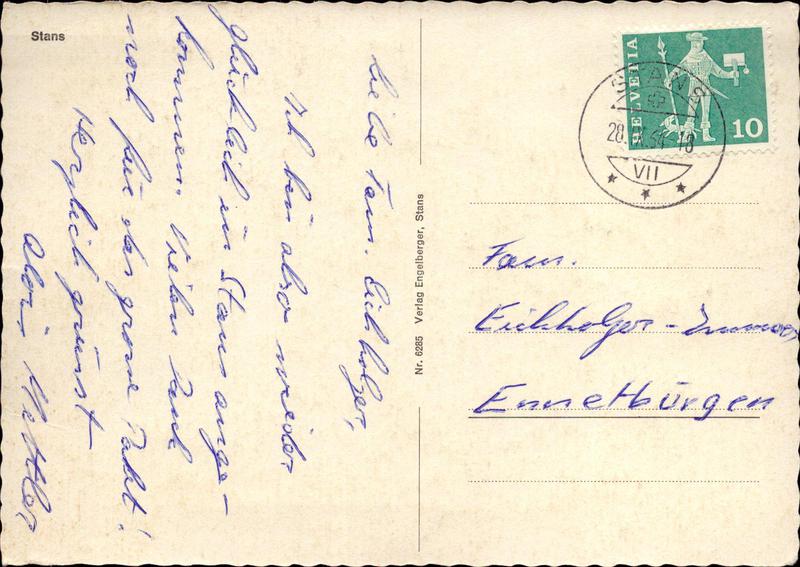 Stans
Liebe Fam. Eichholzer,
Ich bin also wieder
glücklich in Stans ange-
kommen. Vielen Dank
noch für das grosse Fäscht!
Herzlich grüsst
Alois
Nr. 6285 Verlag Engelberger, Stans
HELVETIA
10
STANS
VII
Fam.
Eichholzer-
Ennetbürgen